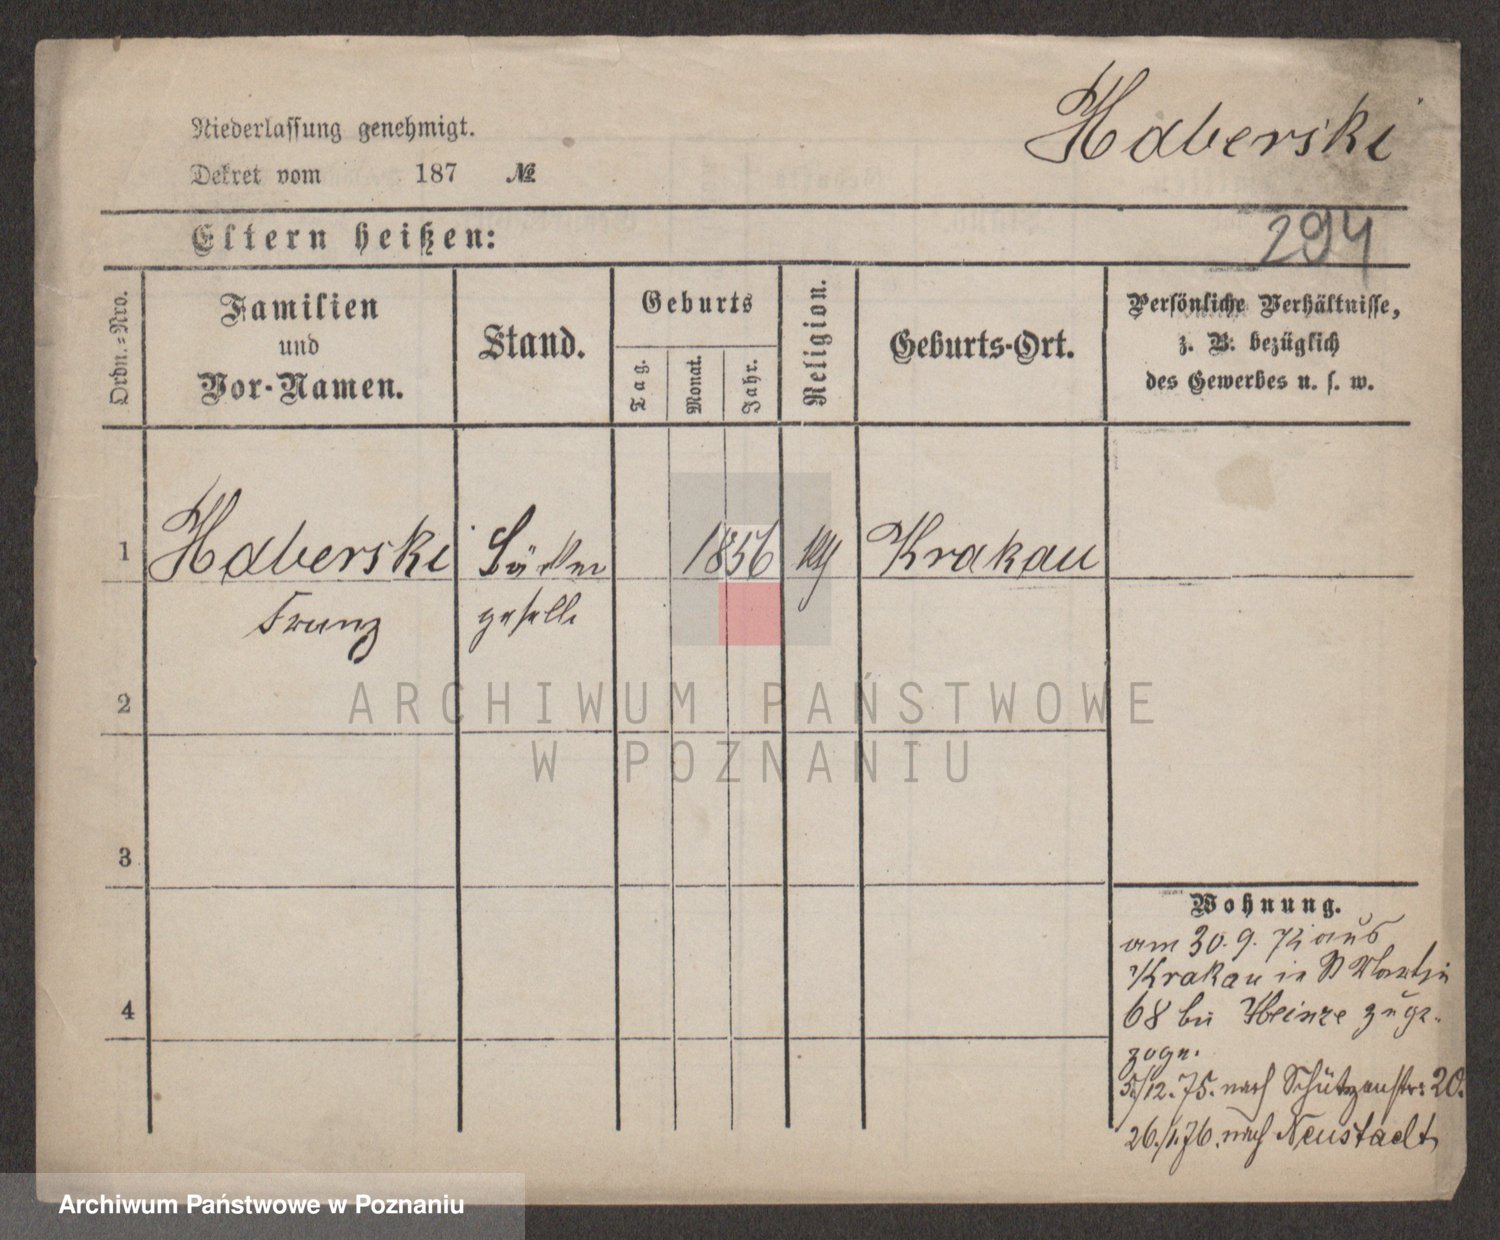 Haberski
Niederlassung genehmigt.
Dekret vom 187 №
294
Eltern heißen:
Ordn.=Nro.
Familien
und
Vor-Namen.
Stand.
Geburts
Tag.
Monat.
Jahr.
Religion.
Geburts-Ort.
Persönliche Verhältnisse,
z. B. bezüglich
des Gewerbes u. s. w.
1 Haberski 1856 Krakau
Franz geselle
2
ARCHIWUM PAŃSTWOWE
W POZNANIU
3
Wohnung.
am 30. 9. aus
Krakau in St Martin
4
68 bei Heinze zuge-
zogen.
5/12. 75. nach Schützenstr. 20.
26./1.76. nach Neustadt
Archiwum Państwowe w Poznaniu